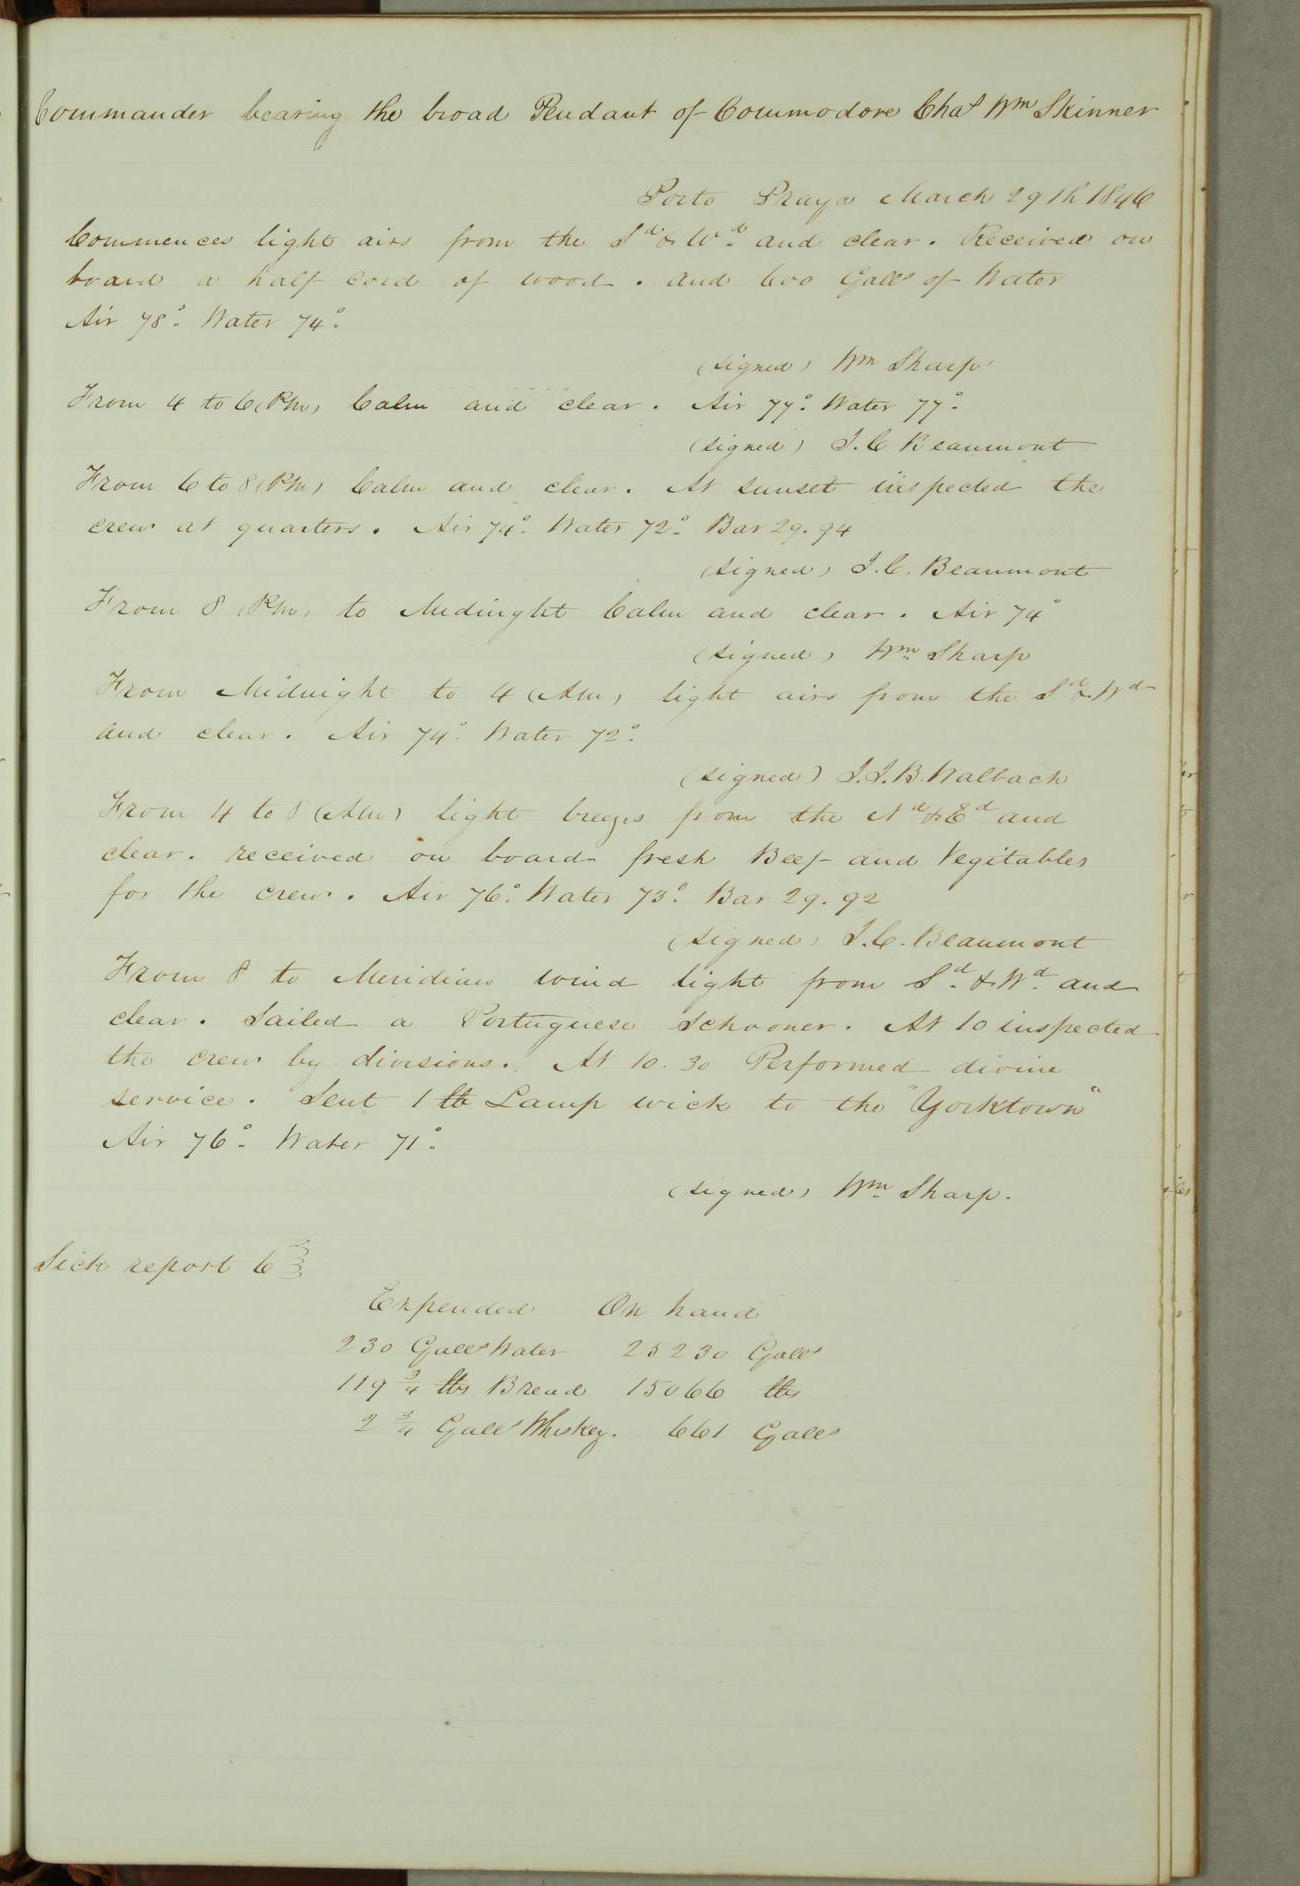 Commander bearing the broad Pendant of Commodore Chas Wm Skinner
Porto Praya March 29th 1846
Commences light airs from the Sd & Wd and clear. Received on
board a half cord of wood. and 600 Galls of Water
Air 78° Water 74°
(signed) Wm Sharp
From 4 to 6 (PM) Calm and clear. Air 77° Water 77°
(signed) J.C Beaumont
From 6 to 8 (PM) Calm and clear. At sunset inspected the
crew at quarters. Air 74° Water 72° Bar 29.94
(signed) J.C. Beaumont
From 8 (PM) to Midinght Calm and clear. Air 74°
(signed) Wm Sharp
From Midnight to 4 (AM) light airs from the Sd & Wd
and clear. Air 74° Water 72°
(signed) J.J.B. Walbach
From 4 to 8 (AM) light breezes from the Nd & Ed and
clear. received on board fresh Beef and Vegitables
for the crew. Air 76° Water 73° Bar 29.92
(signed) J.C. Beaumont
From 8 to Meridian wind light from Sd & Wd and
clear. Sailed a Portuguese Schooner. At 10 inspected
the crew by divisions. At 10.30 Performed divine
service. Sent 1 lb Lamp wick to the "Yorktown"
Air 76° Water 71°
(signed) Wm Sharp.
Sick report 6
Expended On hand
230 Galls Water 25230 Galls
119 3/4 lbs Bread 15066 lbs
2 3/4 Galls Whiskey. 661 Galls